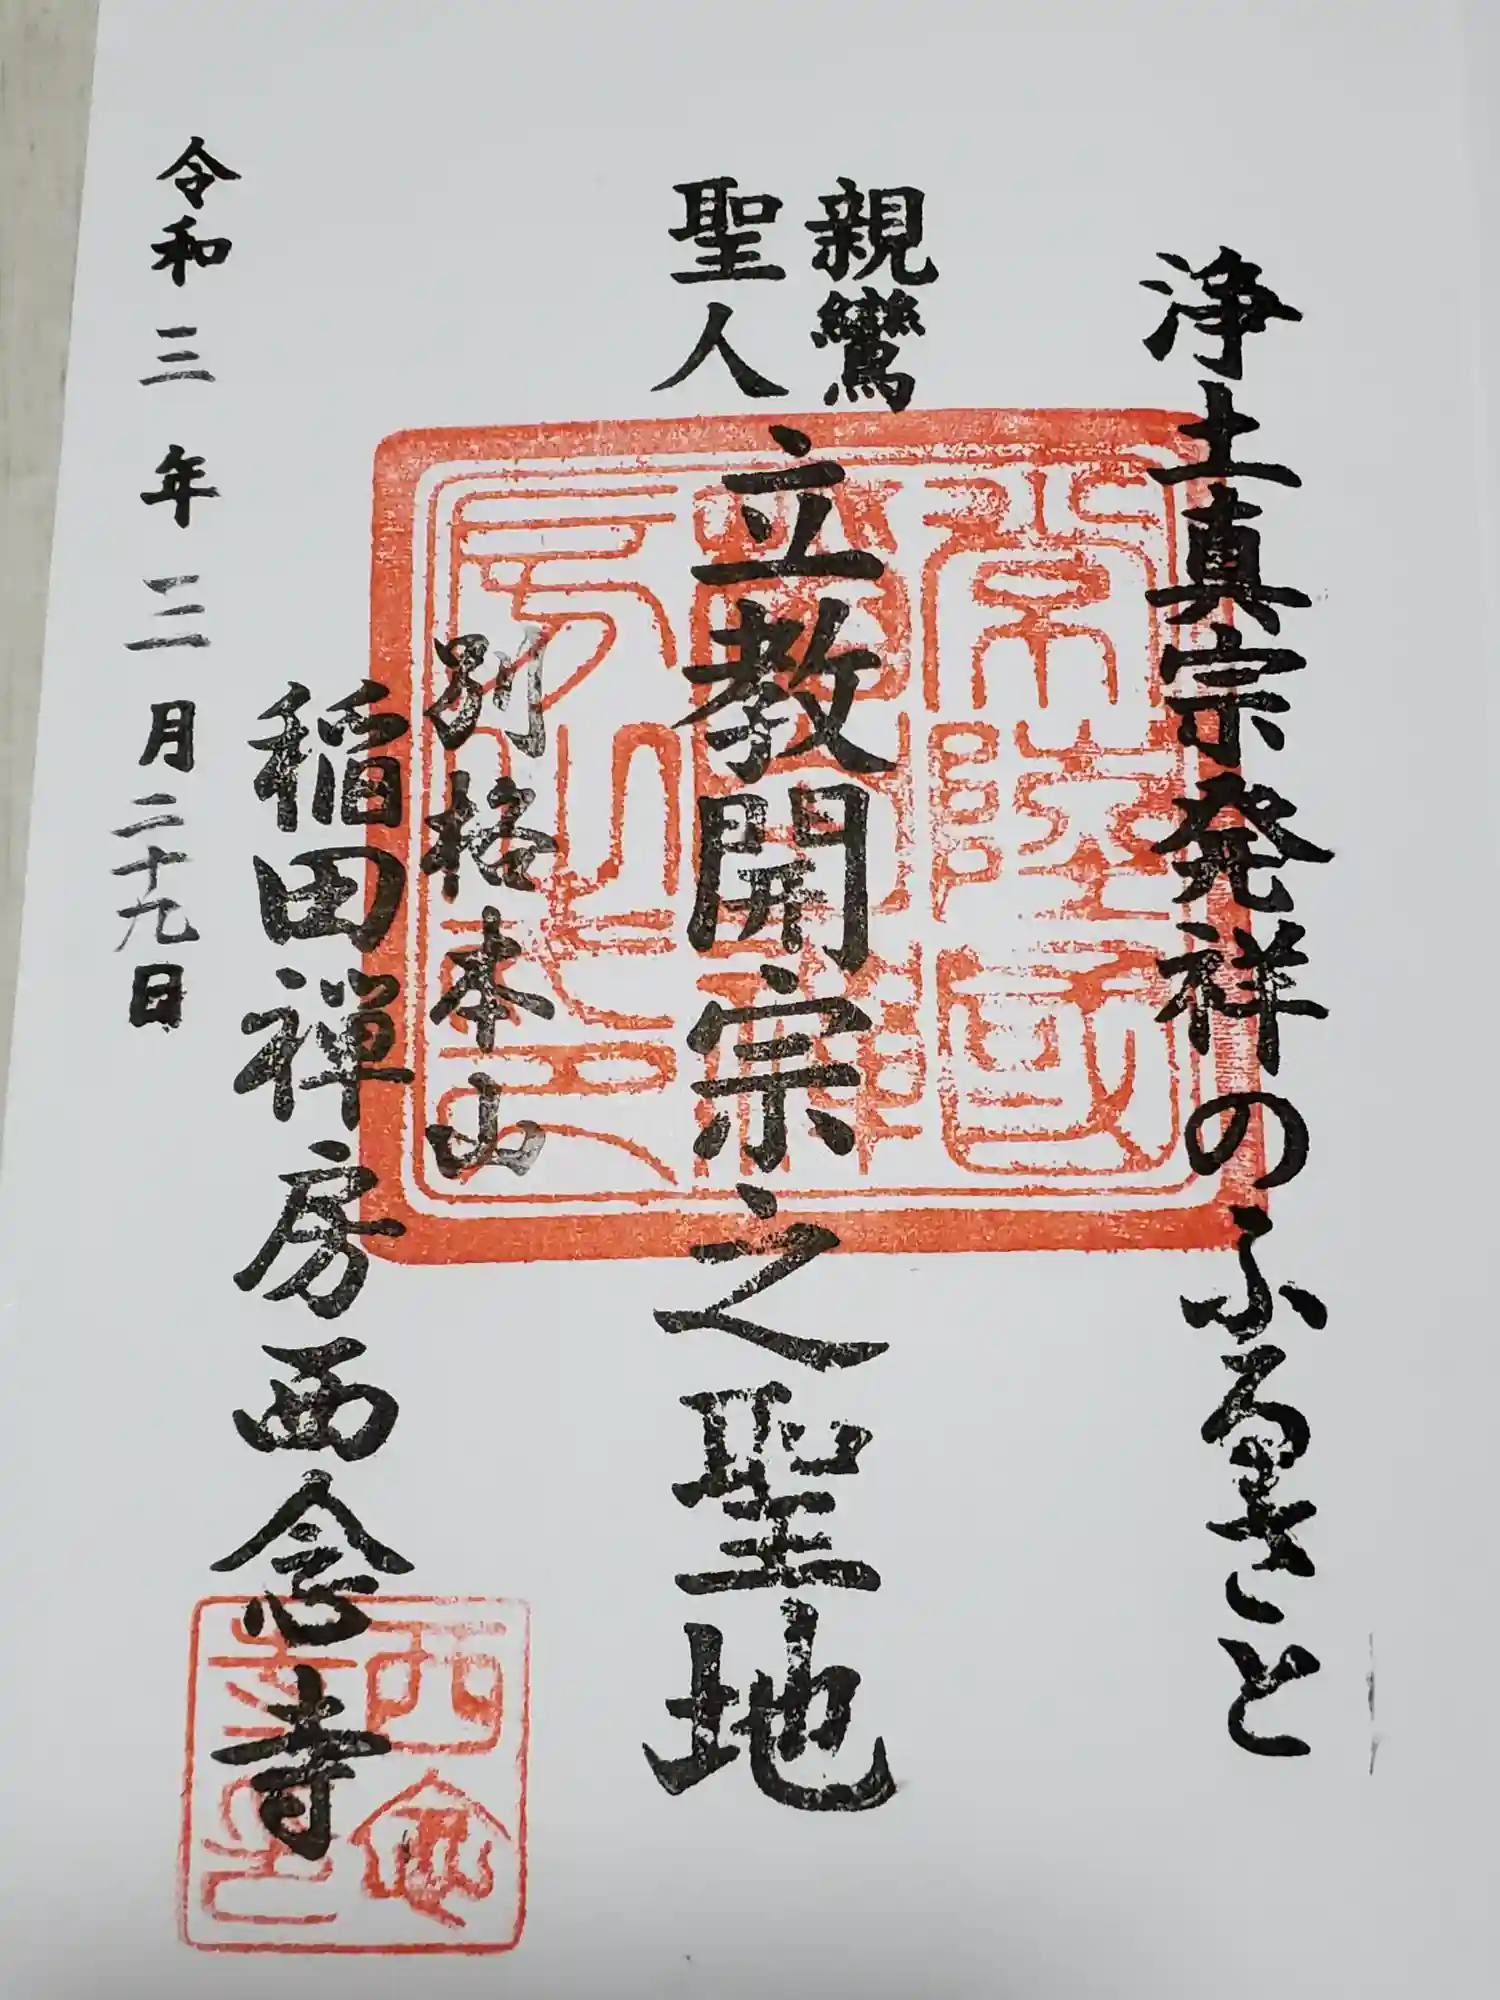 浄土真宗発祥のふるさと
親鸞
聖人
立教開宗之聖地
別格本山
稲田禅房西念寺
令和三年三月二十九日
西念
寺印